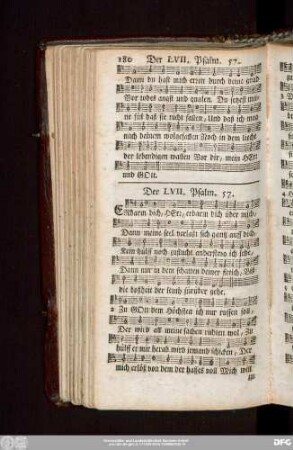 180 Der LVII. Psalm. 57.
Dann du hast mich errett durch deine gnad
Vor todes angst und qualen, Du setzest mei-
ne füß daß sie nicht fallen, Und daß ich mög
nach deinem wolgefallen Noch in dem liecht
der lebendigen wallen Vor dir, mein HErr
und GOtt.
Der LVII. Psalm. 57.
ERbarm dich, HErr, erbarm dich über mich,
Dann meine seel verlaßt sich gantz auff dich,
Kein hülff noch zuflucht anderstwo ich sehe,
Dann nur in dem schatten deiner
die boßheit der leuth fürüber gehe.
2 Zu GOtt dem Höchsten ich nur ruffen soll,
Der wird all meine sachen richten wol, Zu
hülff er mir herab wird jemand schicken, Der
mich erlöß von dem der hasses voll Mich will